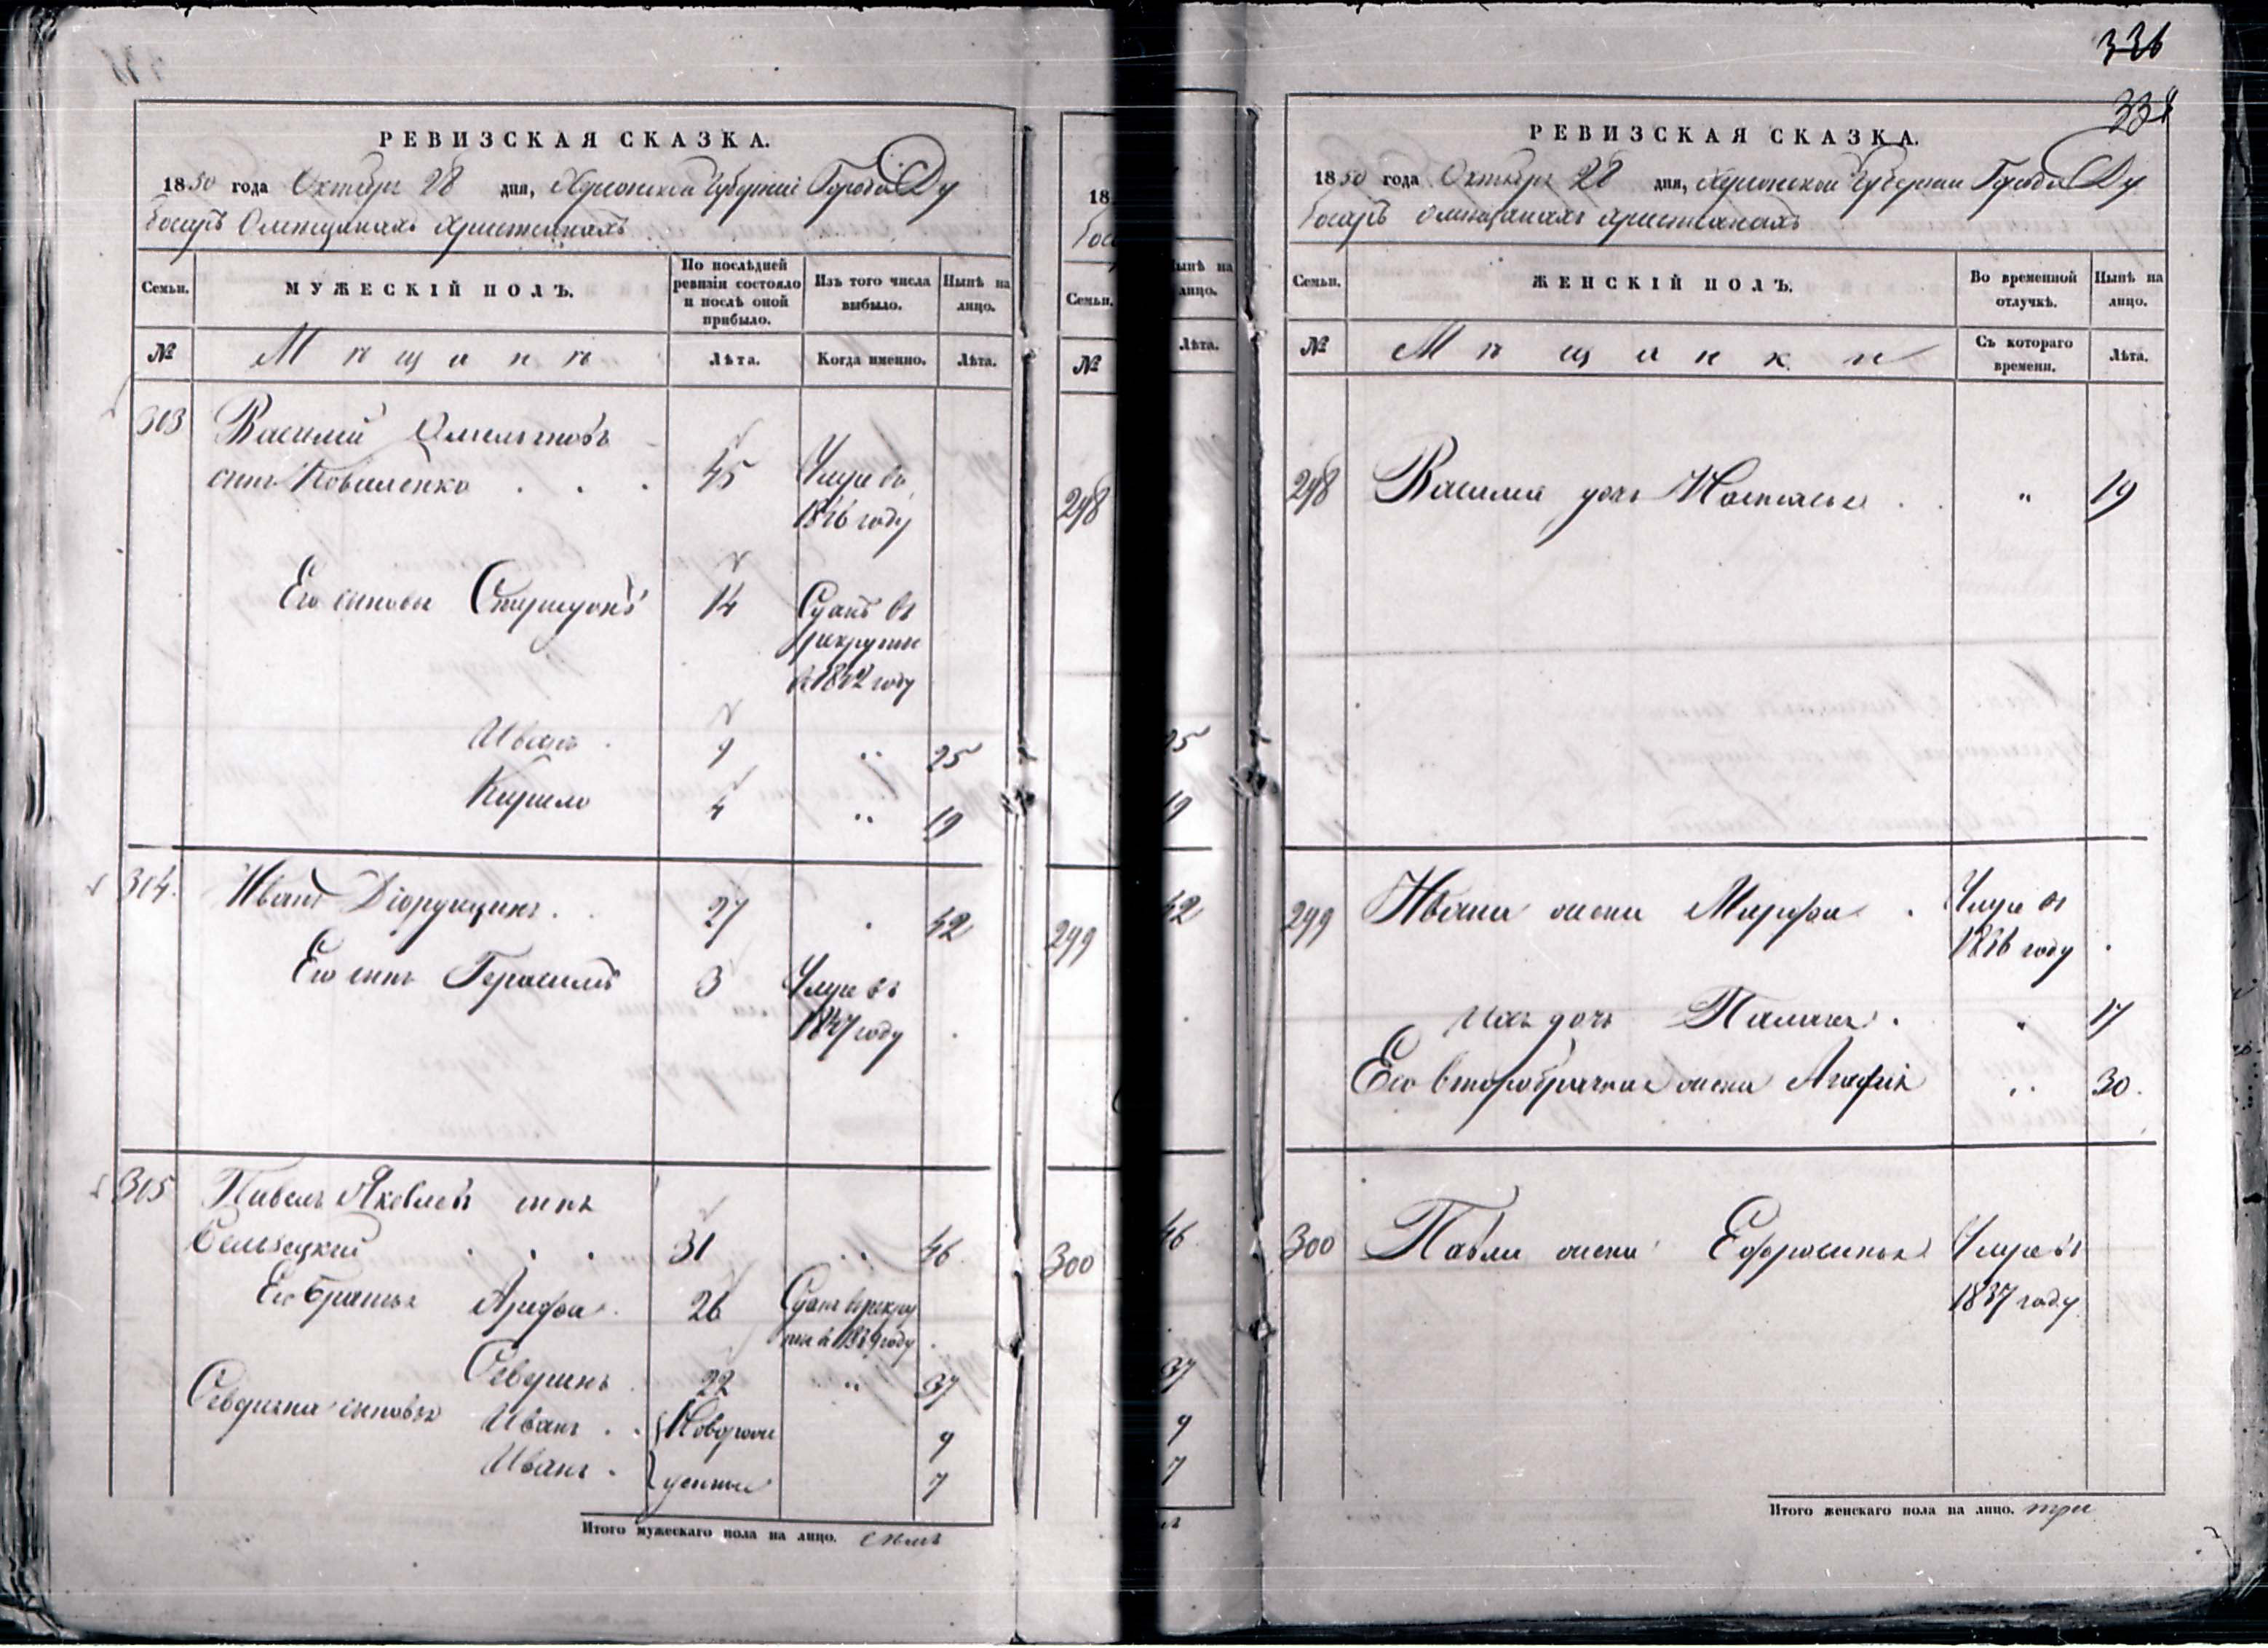 РЕВИЗСКАЯ СКАЗКА.
1850 года Октября 28 дня, Херсонской Губернии Города Ду
босаръ О мещанахъ христианахъ
Семьи.
МУЖЕСКІЙ ПОЛЪ.
По послѣдней ревизіи состояло и послѣ оной прибыло.
Изъ того числа выбыло.
Нынѣ на лицо.
№
Мѣщанѣ
Лѣта.
Когда именно.
Лѣта.
303 Василий Омельяновъ
сынъ Коваленко . . . 45 Умре въ
1846 году
Его сыновья Спиридонъ 14 Сданъ въ
рекруты
въ 1842 году
Иванъ . 9 " 25
Кирило 4 " 19
304. Иванъ 27 42
Его сынъ Герасимъ 3 Умре въ
1847 году
305 Павелъ Яковлевъ сынъ
31 " 46
Его братья Арефа . 26 Сданъ въ рекру
ты въ году
Северинъ 22 " 37
Северина сыновья Иванъ . . Новорож 9
Иванъ . денные 7
Итого мужескаго пола на лицо. семь
18
Семьи.
№
298
299
300
Нынѣ на
лицо.
Лѣта.
25
19
42
46
37
9
7
336
338
РЕВИЗСКАЯ СКАЗКА.
1850 года Октября 28 дня, Херсонской Губернии Города Ду
босаръ О мещанахъ христианахъ
Семьи.
ЖЕНСКІЙ ПОЛЪ.
Во временной отлучкѣ.
Нынѣ на лицо.
№
Мѣщанки
Съ котораго времени.
Лѣта.
298 Василия дочь Настасья . . " 19
299 Ивана жена Марфа . Умре въ
1836 году .
Ихъ дочь . " 17
Его второбрачная жена Агафия " 30.
300 Павла жена Ефросинья Умре въ
1837 году
Итого женскаго пола на лицо. три